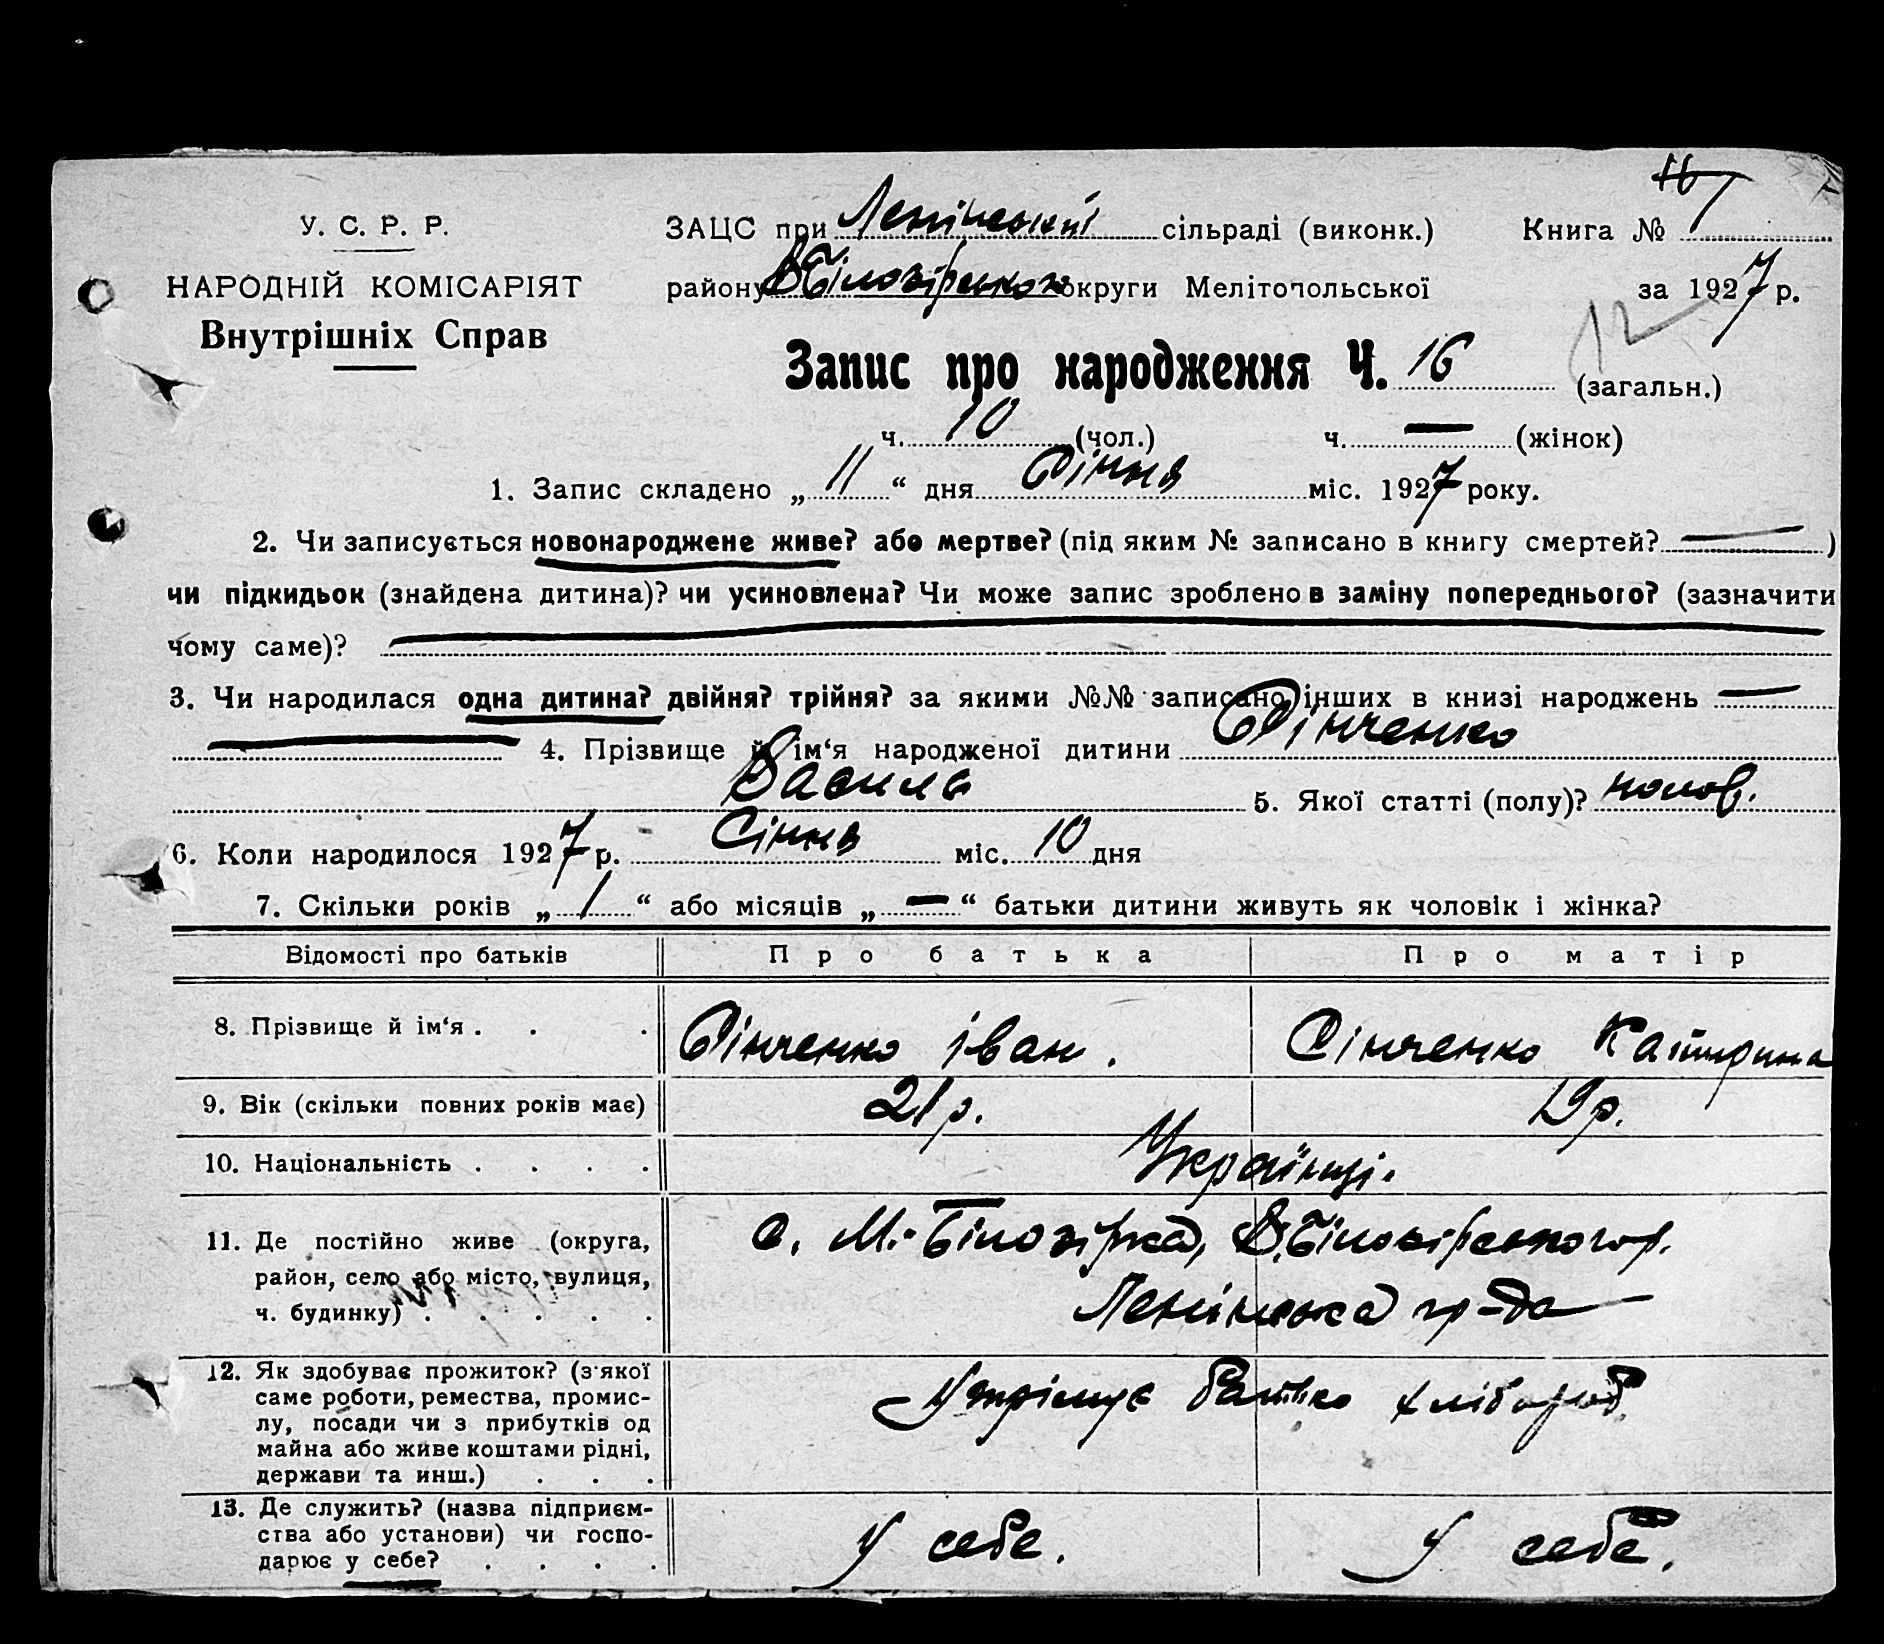 У. С. Р. Р.
НАРОДНІЙ КОМІСАРІЯТ
Внутрішніх Справ
ЗАЦС при Ленінській сільраді (виконк.)
Книга №
району В Білозірського округи Мелітопольської
за 1927 р.
Запис про народження Ч. 16 (загальн.)
12
ч. 10 (чол.) ч. — (жінок)
1. Запис складено „ 11 “ дня Січня міс. 1927 року.
2. Чи записується новонароджене живе? або мертве? (під яким № записано в книгу смертей? — )
чи підкидьок (знайдена дитина)? чи усиновлена? Чи може запис зроблено в заміну попереднього? (зазначити
чому саме)? —
3. Чи народилася одна дитина? двійня? трійня? за якими №№ записано інших в книзі народжень —
— 4. Прізвище й ім‘я народженої дитини Сінченко
Василь 5. Якої статті (полу)? чолов.
6. Коли народилося 1927 р. Січня міс. 10 дня
7. Скільки років „ 1 “ або місяців „ — “ батьки дитини живуть як чоловік і жінка?
Відомості про батьків Про батька Про матір
8. Прізвище й ім‘я . . . Сінченко Іван. Сінченко Катирина
9. Вік (скільки повних років має) 21 р. 19 р.
10. Національність . . . . Українці.
11. Де постійно живе (округа,
район, село або місто, вулиця,
ч. будинку) . . . . .
с. М.-Білозірка, В.Білозірського р.
Ленінська гр-да
12. Як здобуває прожиток? (з якої
саме роботи, ремества, промис-
лу, посади чи з прибутків од
майна або живе коштами рідні,
держави та инш.) . . .
Утрімує батько хлібороб
13. Де служить? (назва підприєм-
ства або установи) чи госпо-
дарює у себе? . . . .
У себе. У себе.